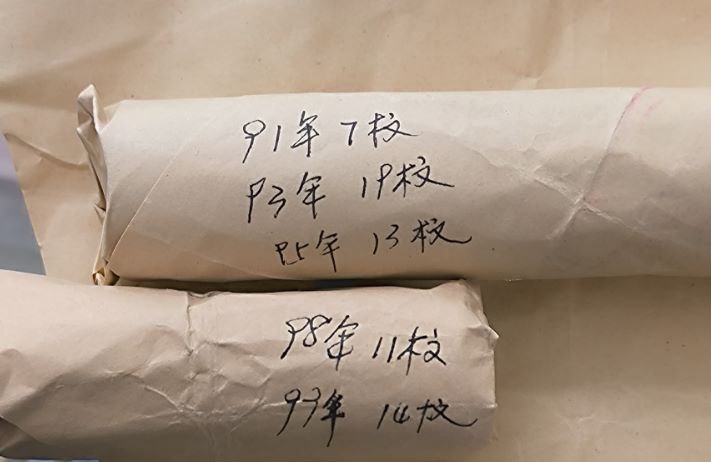 91年 7枚
93年 19枚
95年 13枚
98年 11枚
93年 14枚